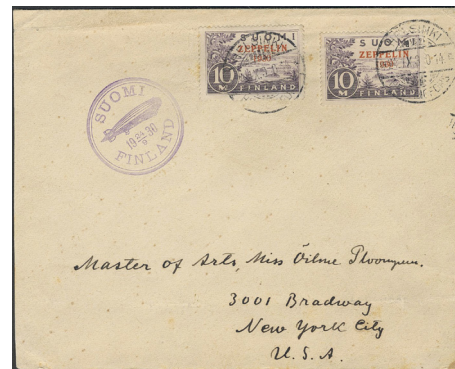 SUOMI
ZEPPELIN
1930
10 M
FINLAND
SUOMI
ZEPPELIN
1930
10 M
FINLAND
HELSINKI
SUOMI
19 24/9 30
FINLAND
Master of Arts, Miss
3001 Bradway
New York City
U. S. A.